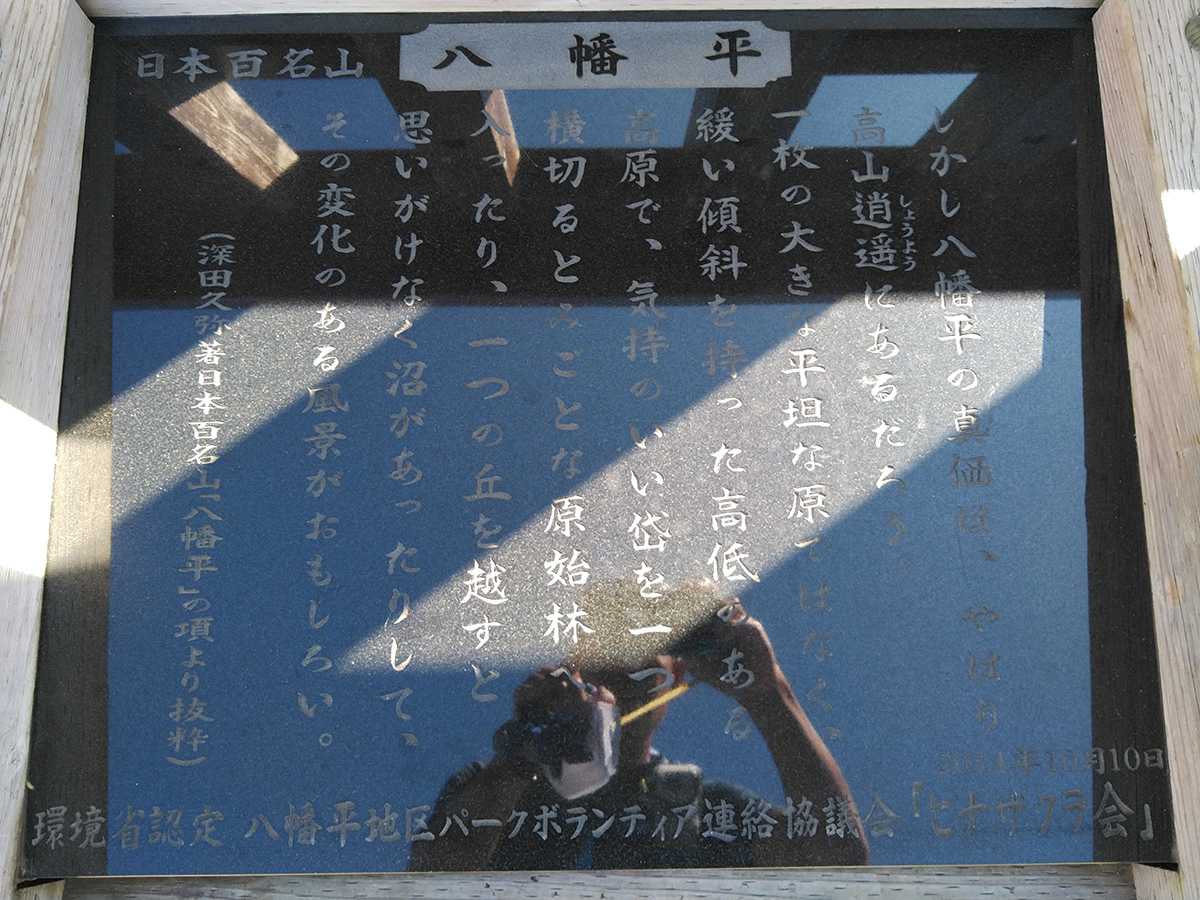 八幡平
日本百名山
しかし八幡平の真価は、やはり
高山逍遥にあるだろう
しょうよう
一枚の大きな平坦な原ではなく、
緩い傾斜を持った高低のある
高原で、気持のいい岱を一つ
横切るとみごとな原始林へ
入ったり、一つの丘を越すと
思いがけなく沼があったりして、
その変化のある風景がおもしろい。
(深田久弥著日本百名山「八幡平」の項より抜粋)
年10月10日
環境省認定 八幡平地区パークボランティア連絡協議会「ヒナザクラ会」